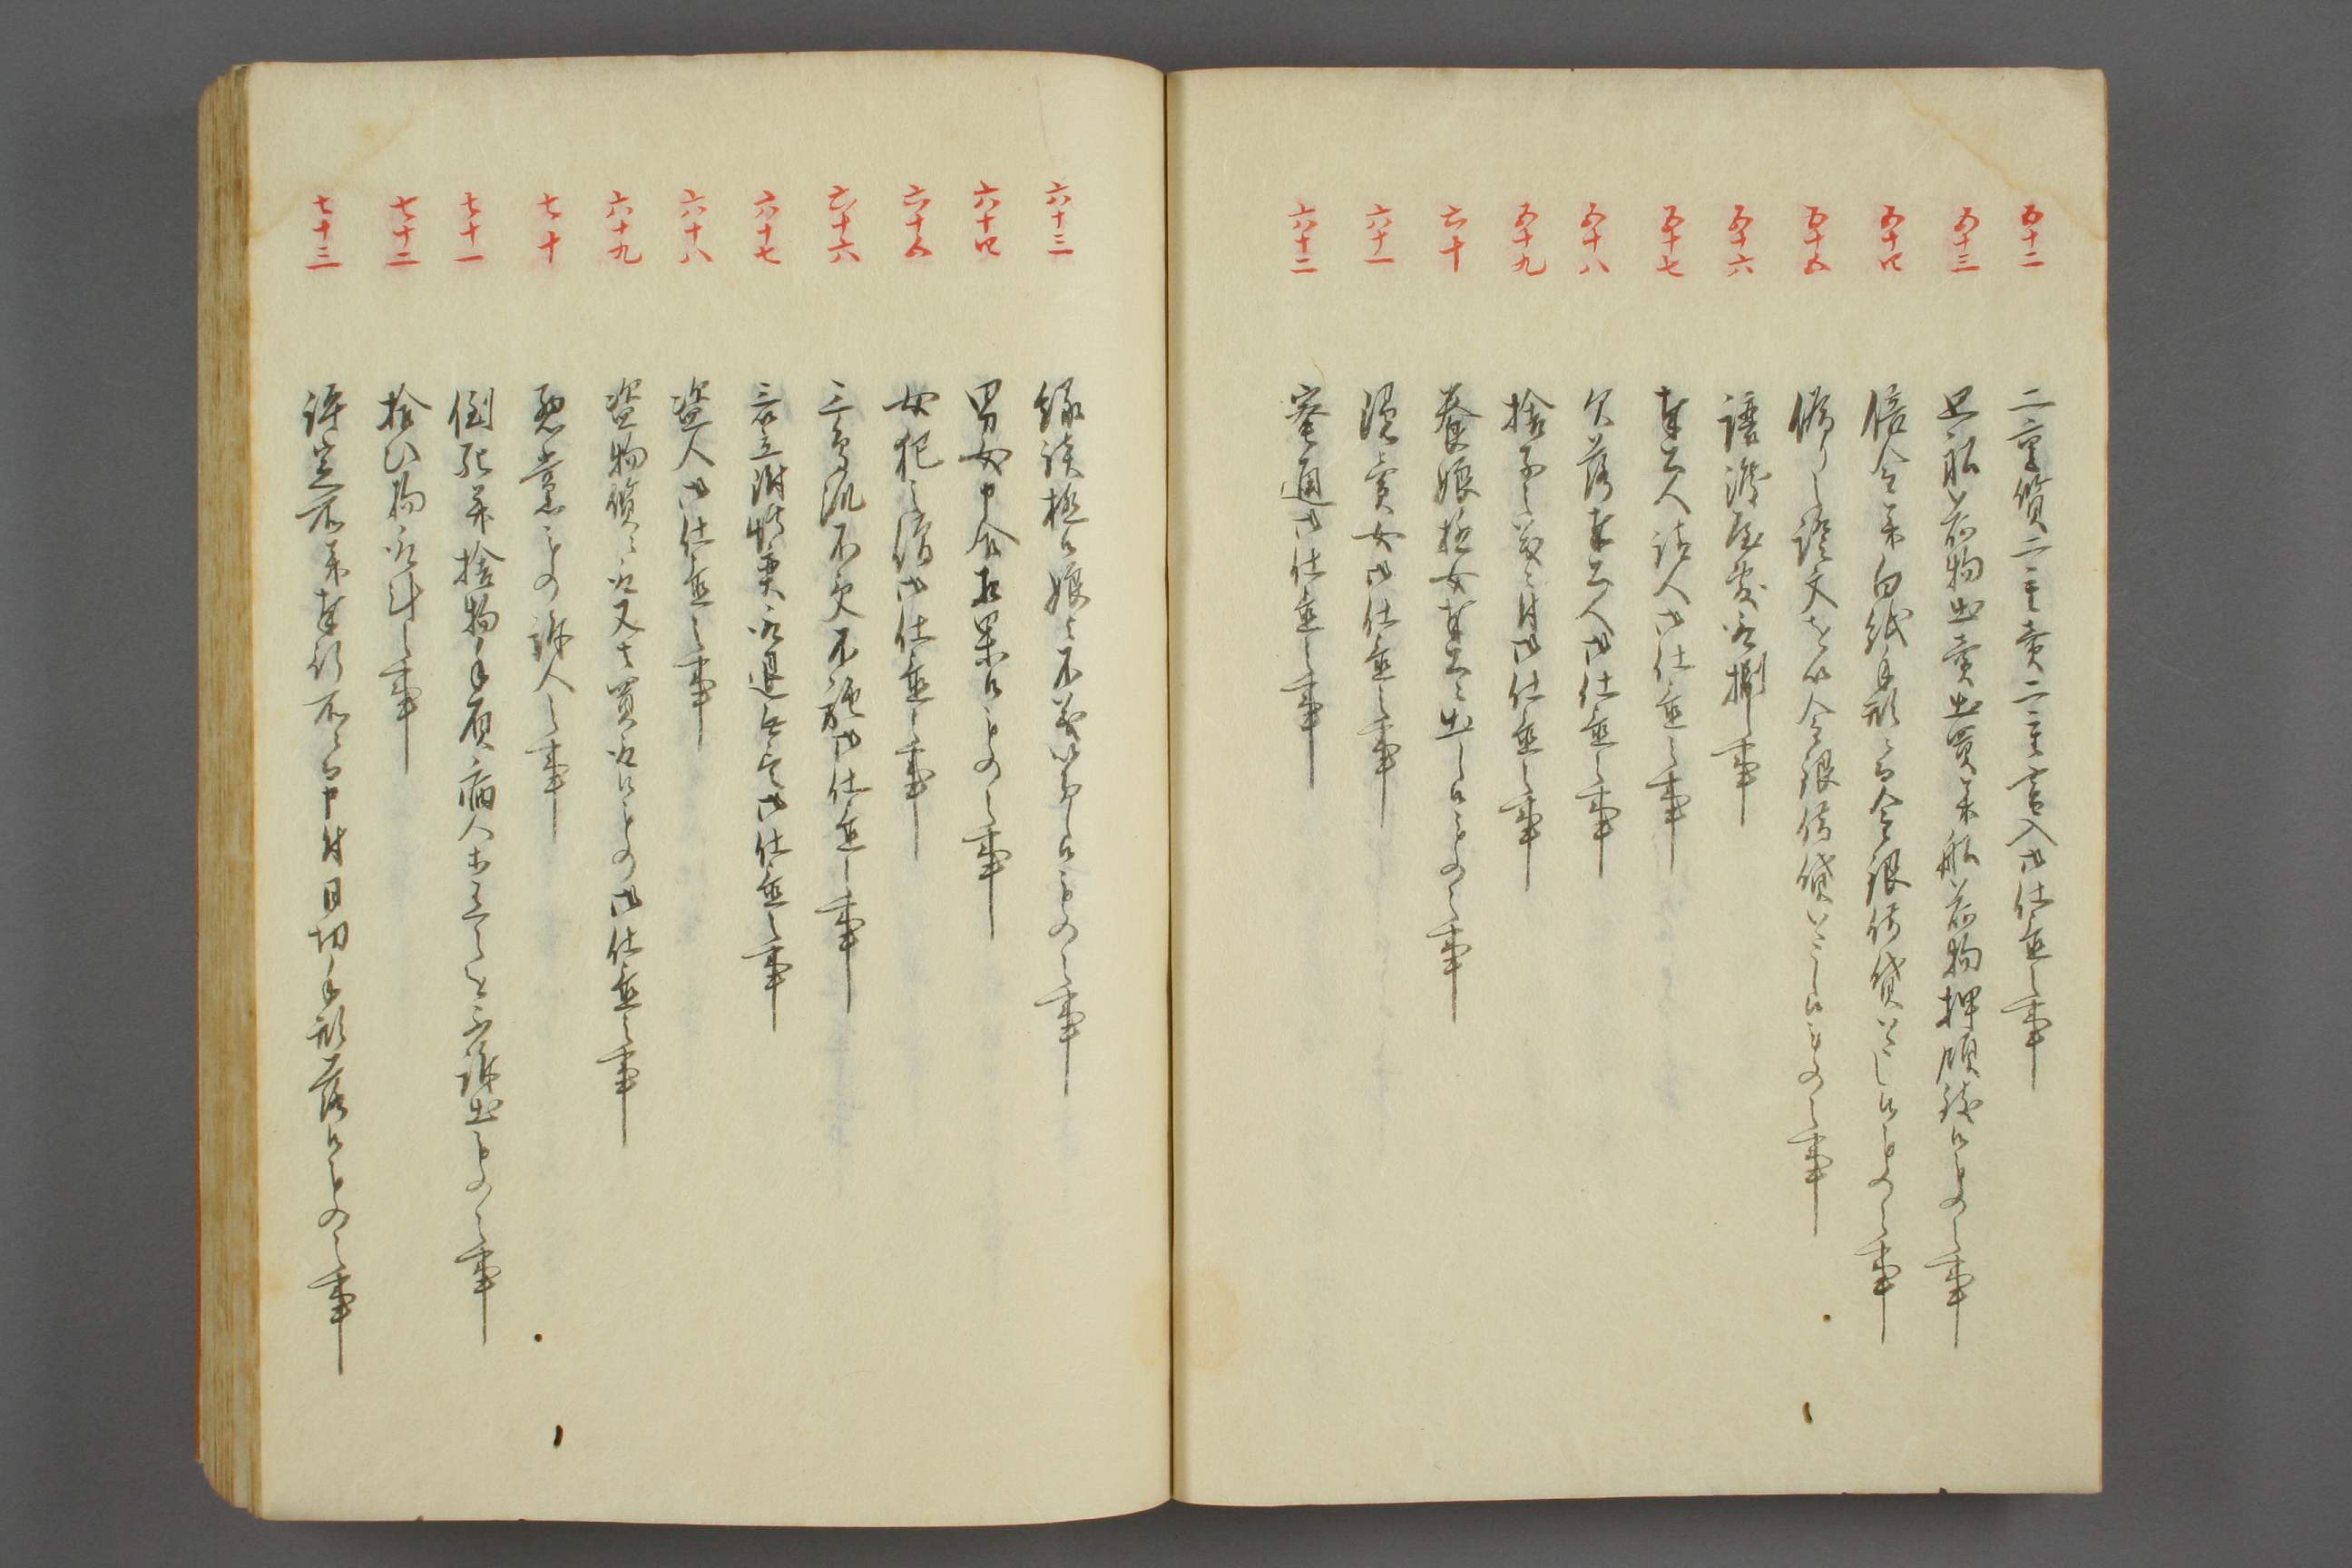 五十二 二重質二重賣二重書入御仕置之事
五十三 廻船荷物出賣出買并船荷物押領致候もの之事
五十四 倍金并白紙手形ニ而金銀借貸いたし候もの之事
五十五 偽り之證文を以金銀借貸いたし候もの之事
五十六 譲渡屋敷取捌之事
五十七 奉公人請人御仕置之事
五十八 欠落奉公人御仕置之事
五十九 捨子之儀ニ付御仕置之事
六十 養娘遊女奉公ニ出し候もの之事
六十一 隠賣女御仕置之事
六十二 密通御仕置之事
六十三 縁談極候娘と不義いたし候もの之事
六十四 男女申合相果候もの之事
六十五 女犯之僧御仕置之事
六十六 三鳥派不受不施御仕置之事
六十七 三笠附博奕取退無尽御仕置之事
六十八 盗人御仕置之事
六十九 盗物質ニ取又は買取候もの御仕置之事
七十 悪黨もの訴人之事
七十一 倒死并捨物手負病人等有之を不訴出もの之事
七十二 拾ひ物取計之事
七十三 評定所并奉行所ニ而申付日切手形落候もの之事